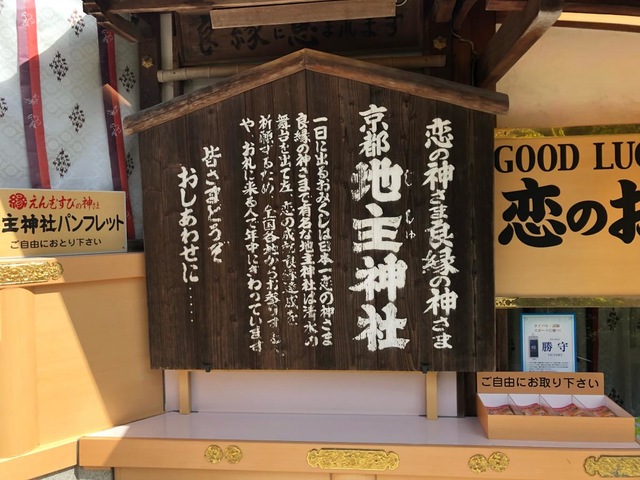 良縁に恵まれます
恋の神さま良縁の神さま
京都 地主神社
じしゅ
一日に出るおみくじは日本一恋の神さま
良縁の神さまで有名な地主神社は清水の
舞台を出て左 恋の成就良縁達成を
祈願するため 全国各地からお参りする人
や、お礼に来る人で年中にぎわっています
皆さまどうぞ
おしあわせに……
縁 えんむすびの神さま
主神社パンフレット
ご自由におとり下さい
GOOD LUC
恋のお
勝守
ご自由にお取り下さい